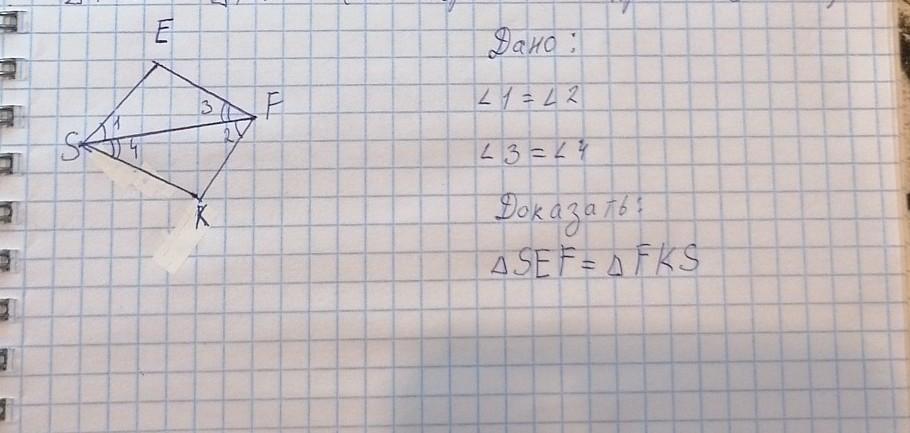 E
3 F
1
2
S 4
K
Дано:
∠1 = ∠2
∠3 = ∠4
Доказать:
△SEF = △FKS